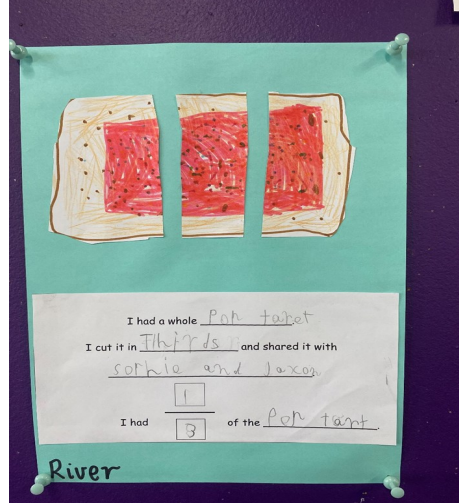 I had a whole Pop taret.
I cut it in Thirds and shared it with
sorhie and Jaxon
1
I had 3 of the Pop tart.
River